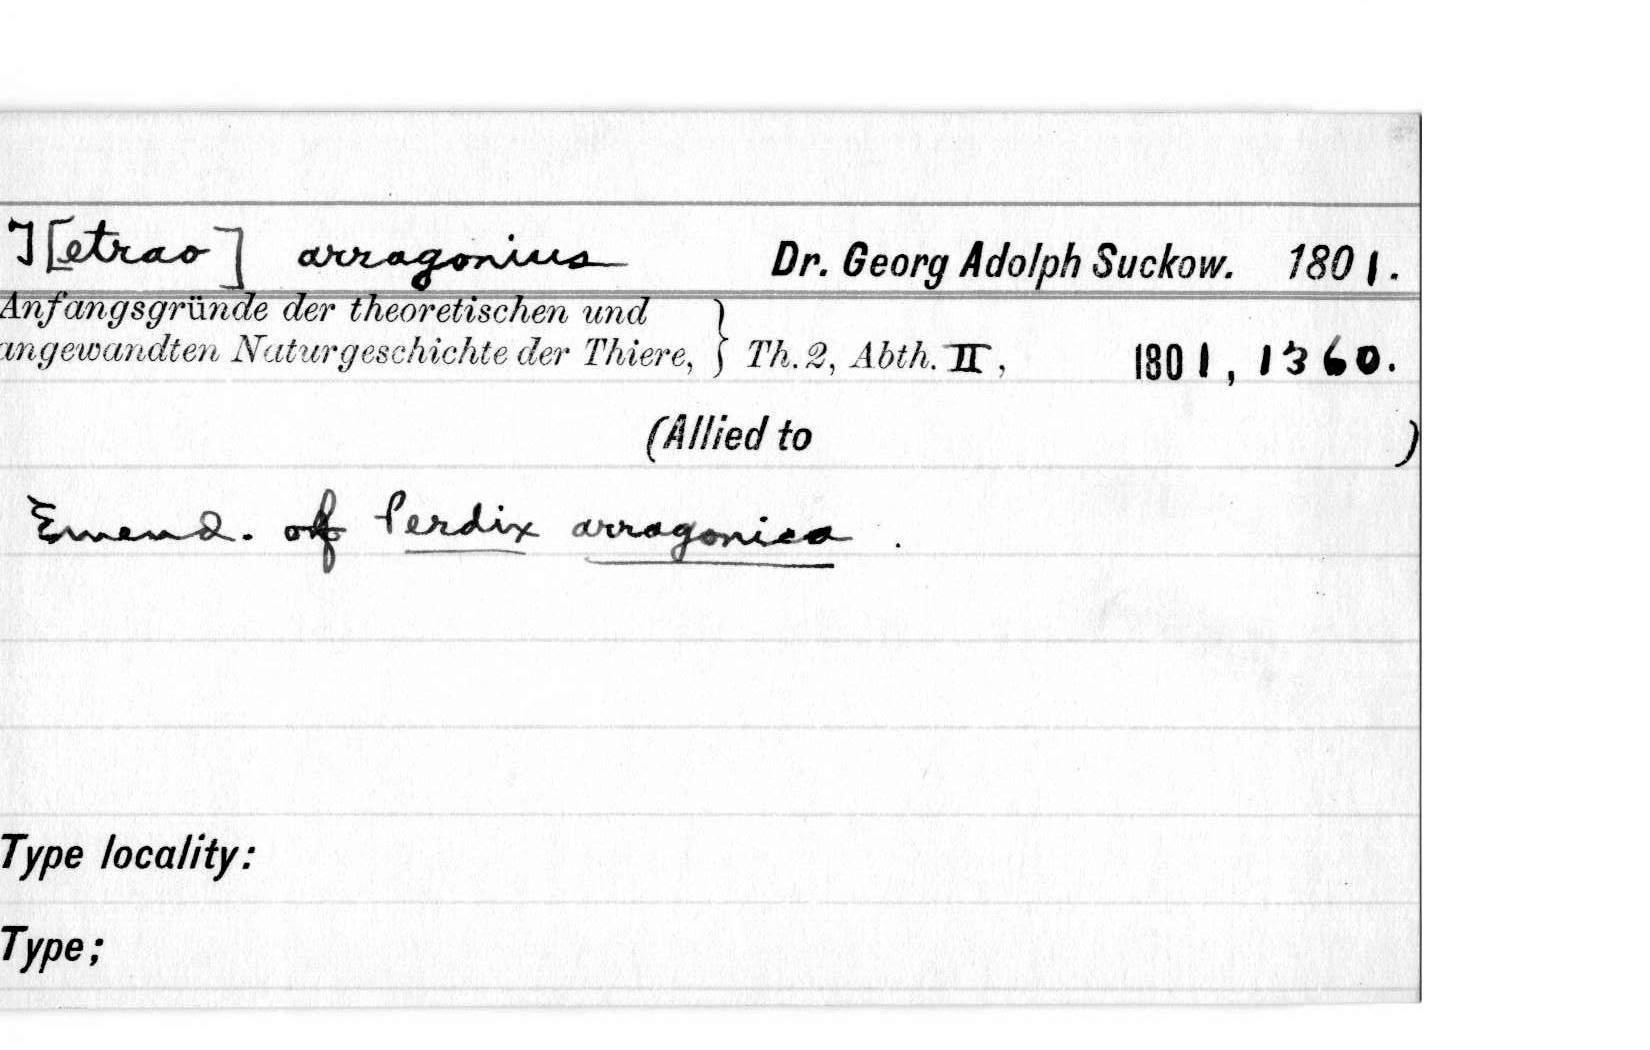 T[etrao] arragonius Dr. Georg Adolph Suckow. 1801.
Anfangsgründe der theoretischen und
angewandten Naturgeschichte der Thiere, } Th. 2, Abth. II, 1801, 1360.
(Allied to )
Emend. of Perdix arragonica.
Type locality:
Type;